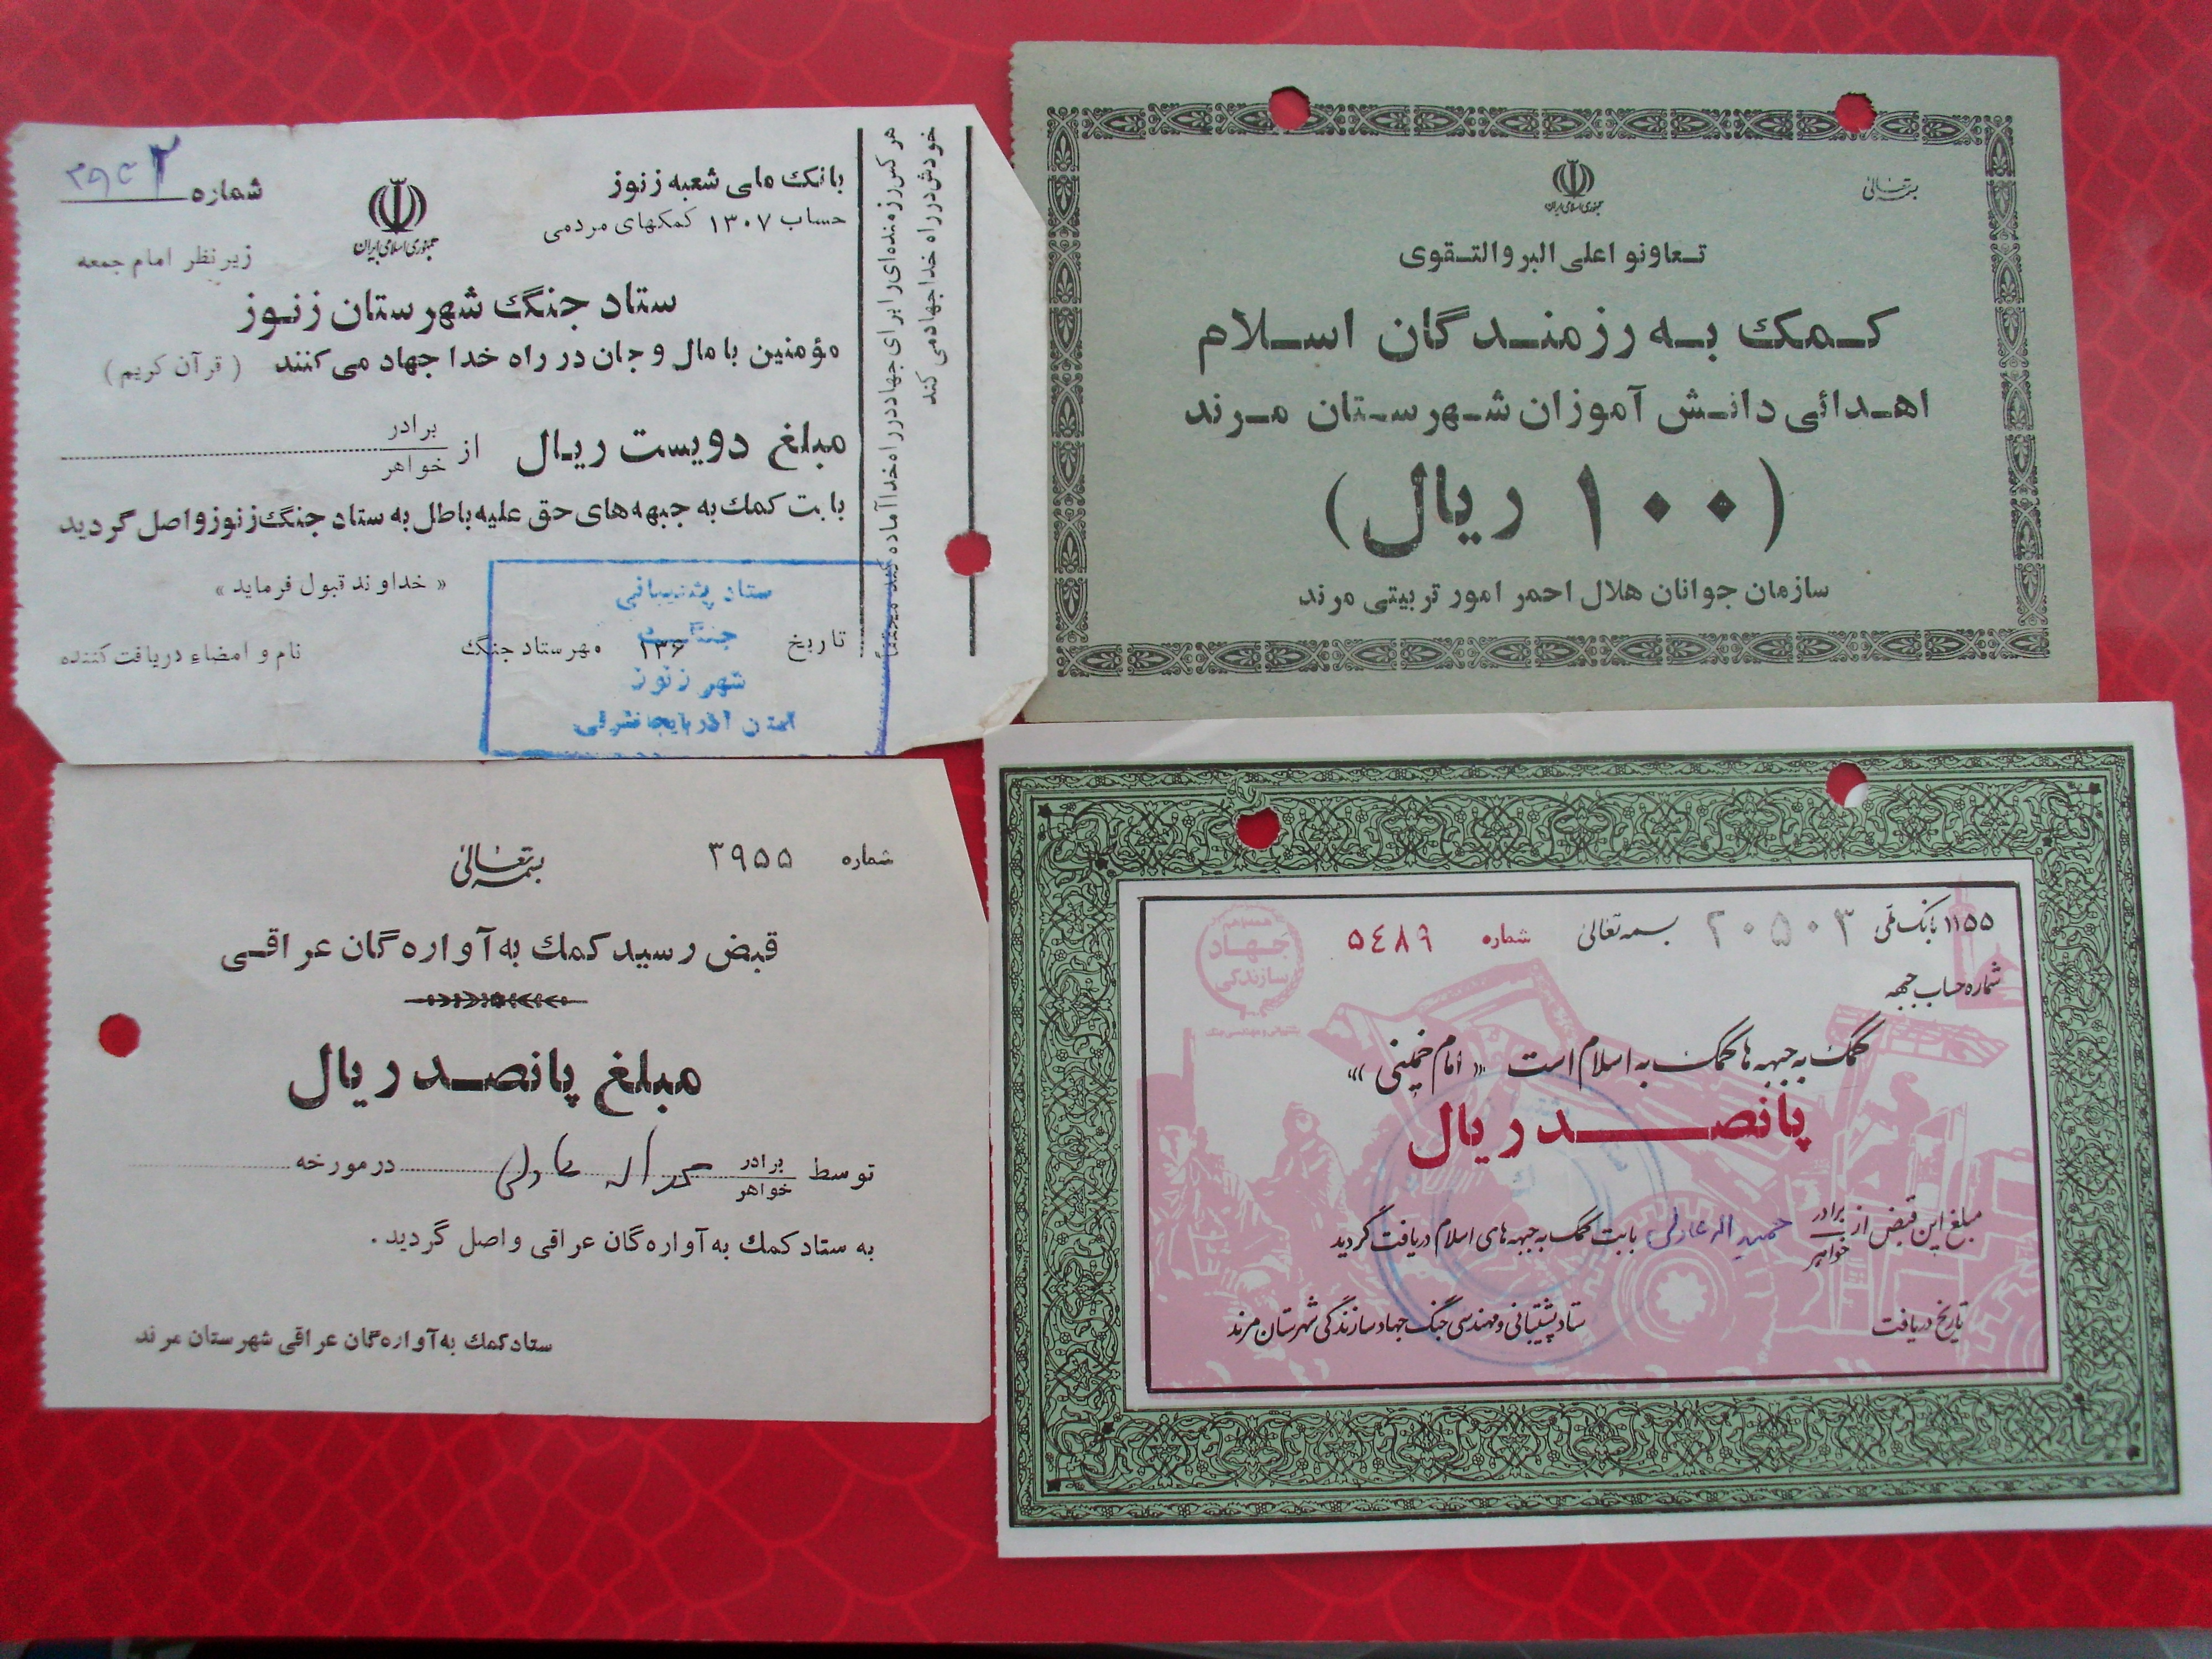 بانک ملی شعبه زنوز
حساب ۱۳۰۷ کمکهای مردمی
جمهوری اسلامی ایران
شماره
زیر نظر امام جمعه
ستاد جنگ شهرستان زنوز
مؤمنین با مال و جان در راه خدا جهاد می کنند ( قرآن کریم )
مبلغ دویست ریال از برادر
خواهر
بابت کمک به جبهه های حق علیه باطل به ستاد جنگ زنوز واصل گردید
« خداوند قبول فرماید »
تاریخ ۱۳۶ مهر ستاد جنگ
نام و امضاء دریافت کننده
ستاد پشتیبانی
جنگ
شهر زنوز
استان آذربایجانشرقی
هر کس رزمنده ای را برای جهاد در راه خدا آماده کند
خودش در راه خدا جهاد می کند
بسمه تعالی
جمهوری اسلامی ایران
تعاونو اعلی البر والتقوی
کمک به رزمندگان اسلام
اهدائی دانش آموزان شهرستان مرند
(۱۰۰ ریال)
سازمان جوانان هلال احمر امور تربیتی مرند
شماره ۳۹۵۵
بسمه تعالی
قبض رسید کمک به آواره گان عراقی
مبلغ پانصد ریال
توسط برادر
خواهر
در مورخه
به ستاد کمک به آواره گان عراقی واصل گردید .
ستاد کمک به آواره گان عراقی شهرستان مرند
۱۱۵۵ بانک ملی ۲۰۵۰۳ بسمه تعالی شماره ۵٤۸۹
شماره حساب جبهه
همه با هم
جهاد
سازندگی
پشتیبانی و مهندسی جنگ
کمک به جبهه ها کمک به اسلام است « امام خمینی »
پانصد ریال
مبلغ این قبض از برادر
خواهر
بابت کمک به جبهه های اسلام دریافت گردید
تاریخ دریافت
ستاد پشتیبانی و مهندسی جنگ جهاد سازندگی شهرستان مرند